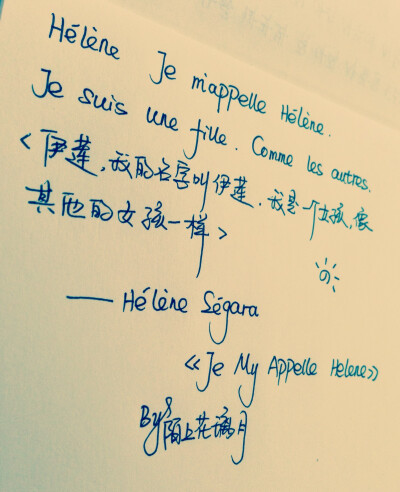 Hélène Je m'appelle Hélène.
Je suis une fille. Comme les autres.
<伊莲,我的名字叫伊莲.我是一个女孩,像
其他的女孩一样>
—— Hélène Ségara
《Je My Appelle Helene》
By 陌上花璃月